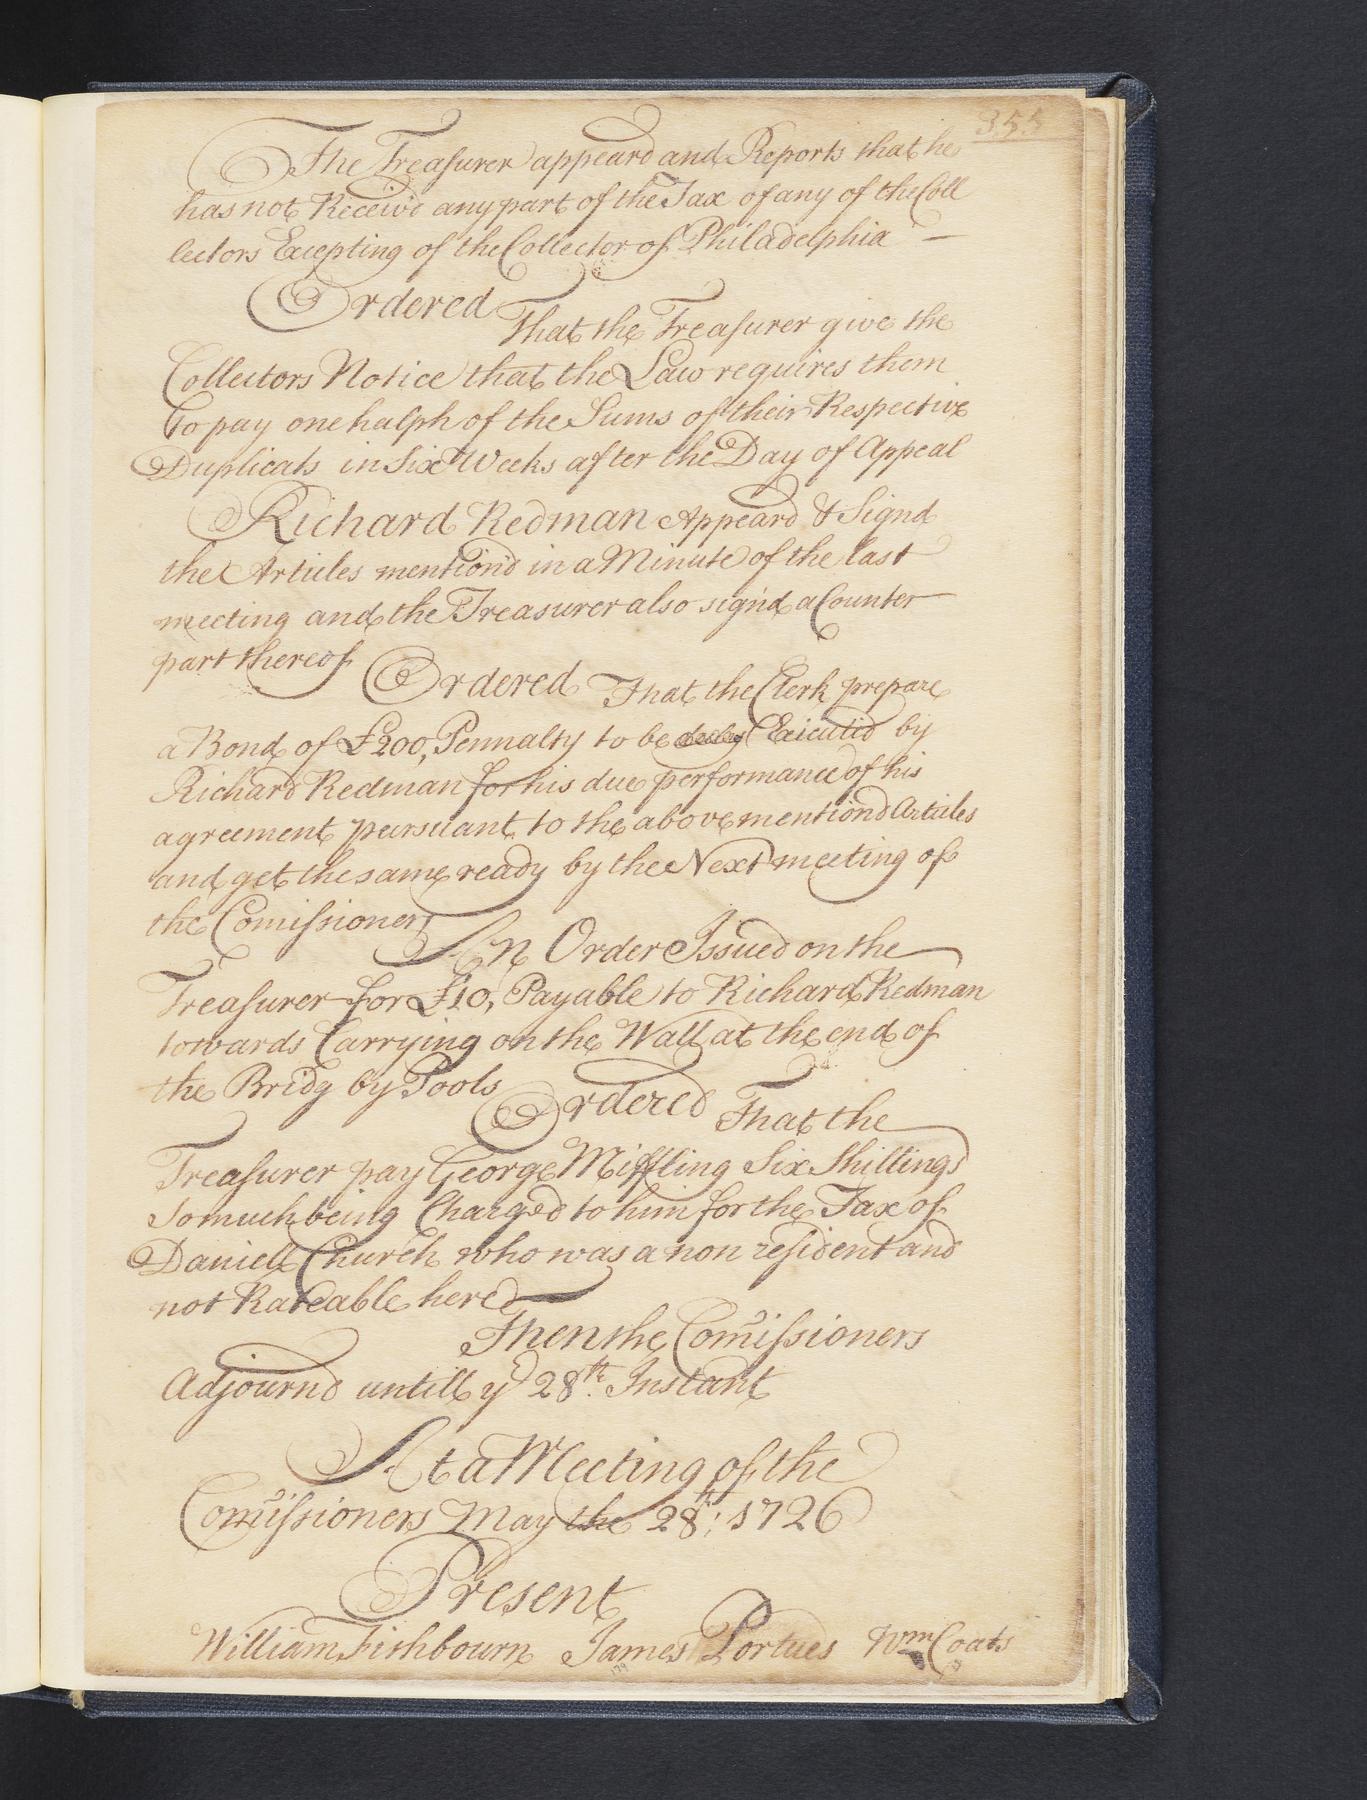 355
The Treasurer appeard and Reports that he
has not Receivd any part of the Tax of any of the Coll
lectors Excepting of the Collector of Philadelphia —
Ordered That the Treasurer give the
Collectors Notice that the Law requires them
To pay one halph of the Sums of their Respective
Duplicats in Six Weeks after the Day of Appeal
Richard Redman Appeard & Signd
the Articles mentiond in a Minute of the last
meeting and the Treasurer also signd a Counter
part thereof
Ordered That the Clerk prepare
a Bond of £200, Pennalty to be Executed by
Richard Redman for his due performance of his
agreement pursuant to the above mentiond Articles
and get the same ready by the Next meeting of
the Comissioners
An Order Issued on the
Treasurer for £10, Payable to Richard Redman
towards Carrying on the Wall at the end of
the Bridg by Pools
Ordered That the
Treasurer pay George Miffling Six Shillings
So much being Charged to him for the Tax of
Daniell Church who was a non resident and
not Rateable here
Then the Comissioners
Adjournd untill ye 28th. Instant
At a Meeting of the
Comissioners May the 28th: 1726
Present
William Fishbourn James Portues Wm Coats